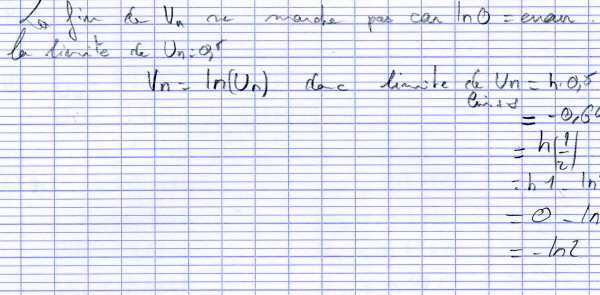 La fin de Vn ne marche pas car ln 0 = erreur.
la limite de Un = 0,5
Vn = ln(Un) donc limite de Un = ln 0,5
= -0,6
= ln(1/2)
= ln 1 - ln
= 0 - ln
= -ln 2